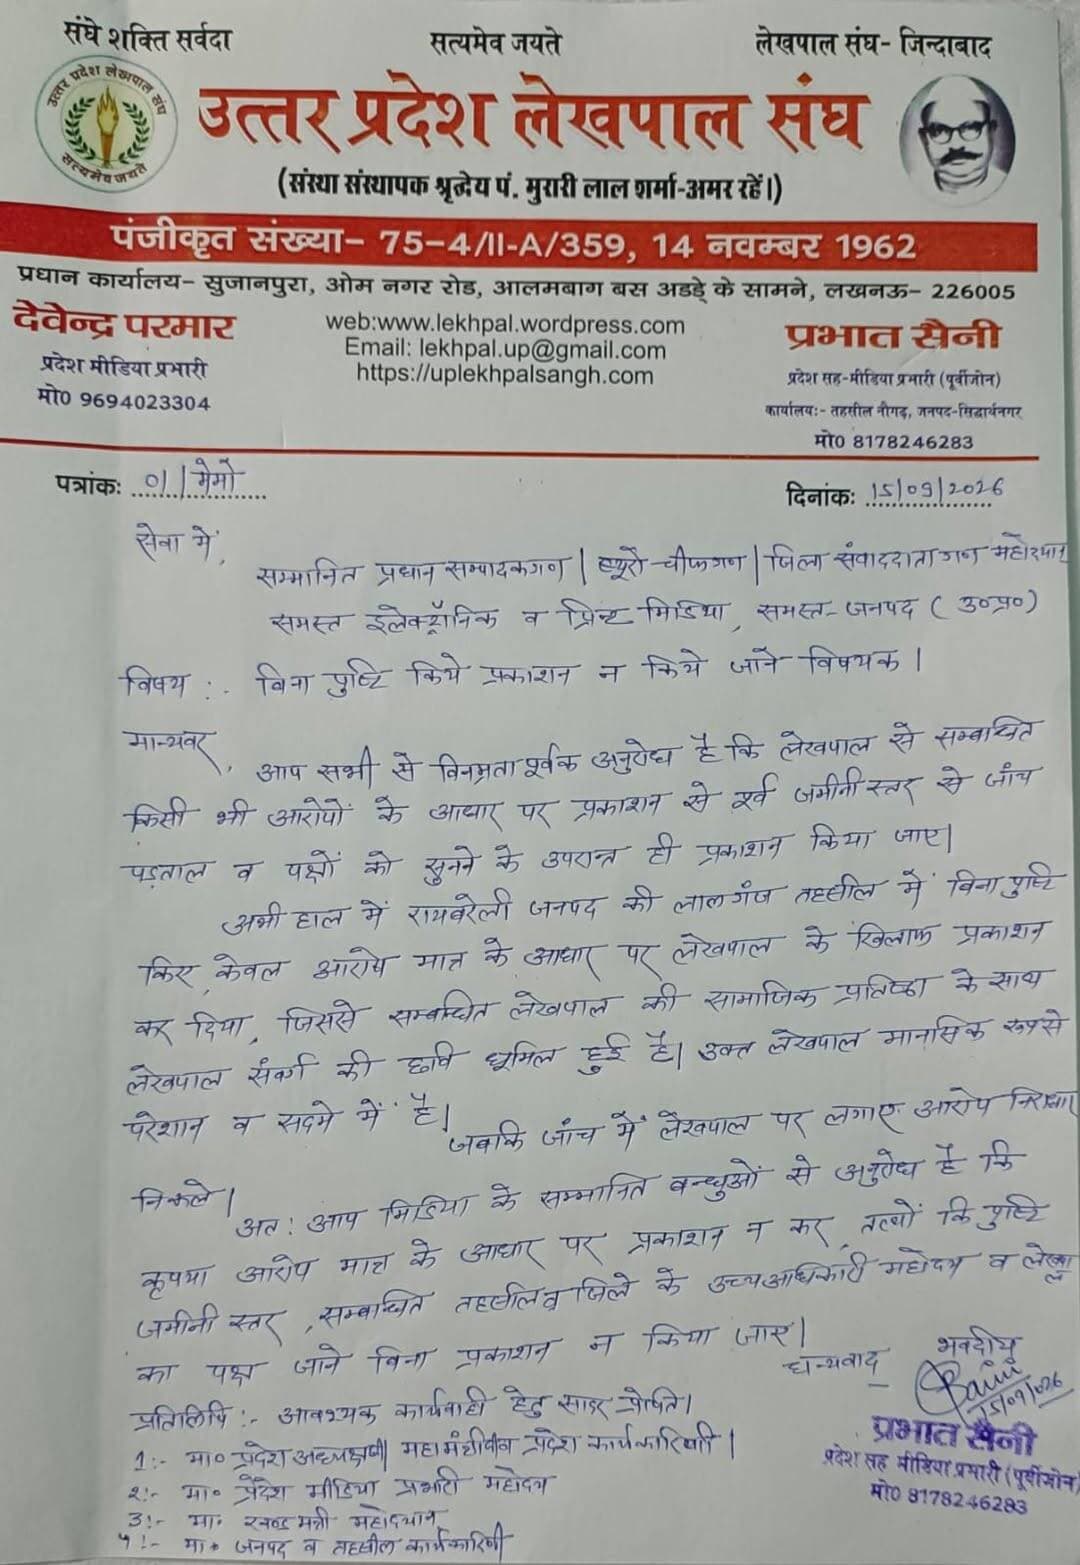 संघे शक्ति सर्वदा
सत्यमेव जयते
लेखपाल संघ- जिन्दाबाद
उत्तर प्रदेश लेखपाल संघ
सत्यमेव जयते
उत्तर प्रदेश लेखपाल संघ
(संस्था संस्थापक श्रृद्धेय पं. मुरारी लाल शर्मा-अमर रहें।)
पंजीकृत संख्या- 75-4/II-A/359, 14 नवम्बर 1962
प्रधान कार्यालय- सुजानपुरा, ओम नगर रोड, आलमबाग बस अडड़े के सामने, लखनऊ- 226005
देवेन्द्र परमार
प्रदेश मीडिया प्रभारी
मो0 9694023304
web:www.lekhpal.wordpress.com
Email: lekhpal.up@gmail.com
https://uplekhpalsangh.com
प्रभात सैनी
प्रदेश सह-मीडिया प्रभारी (पूर्वीजोन)
कार्यालय:- तहसील नौगढ़, जनपद-सिद्धार्थनगर
मो0 8178246283
पत्रांक: 01/मेमो
दिनांक: 15/09/2026
सेवा में,
सम्मानित प्रधान सम्पादकगण/ ब्यूरो-चीफगण/ जिला संवाददाता गन महोदयान
समस्त इलेक्ट्रॉनिक व प्रिन्ट मिडिया, समस्त-जनपद (उ०प्र०)
विषय :. बिना पुष्टि किये प्रकाशन न किये जाने विषयक।
मान्यवर,
आप सभी से विनम्रतापूर्वक अनुरोध है कि लेखपाल से सम्बन्धित
किसी भी आरोपों के आधार पर प्रकाशन से पूर्व जमीनीस्तर से जांच
पड़ताल व पक्षों को सुनने के उपरान्त ही प्रकाशन किया जाए।
अभी हाल में रायबरेली जनपद की लालगंज तहसील में बिना पुष्टि
किए, केवल आरोप मात्र के आधार पर लेखपाल के खिलाफ प्रकाशन
कर दिया, जिससे सम्बन्धित लेखपाल की सामाजिक प्रतिष्ठा के साथ
लेखपाल संवर्ग की छवि धूमिल हुई है। उक्त लेखपाल मानसिक रूपसे
परेशान व सदमे में है।
जबकि जांच में लेखपाल पर लगाए आरोप निराधार
निकले।
अत: आप मिडिया के सम्मानित बन्धुओं से अनुरोध है कि
कृपया आरोप मात्र के आधार पर प्रकाशन न कर, तथ्यों कि पुष्टि
जमीनी स्तर, सम्बन्धित तहसील व जिले के उच्चअधिकारी महोदय व लेखपाल
का पक्ष जाने बिना प्रकाशन न किया जाए।
धन्यवाद
भवदीय
15/09/026
प्रभात सैनी
प्रदेश सह मीडिया प्रभारी (पूर्वीजोन)
मो0 8178246283
प्रतिलिपि :- आवश्यक कार्यवाही हेतु सादर प्रेषित।
1:- मा० प्रदेश अध्यक्षजी/ महामंत्रीजी व प्रदेश कार्यकारिणी।
2:- मा० प्रदेश मीडिया प्रभारी महोदय
3:- मा० खण्ड मंत्री महोदयान
4:- मा० जनपद व तहसील कार्यकारिणी